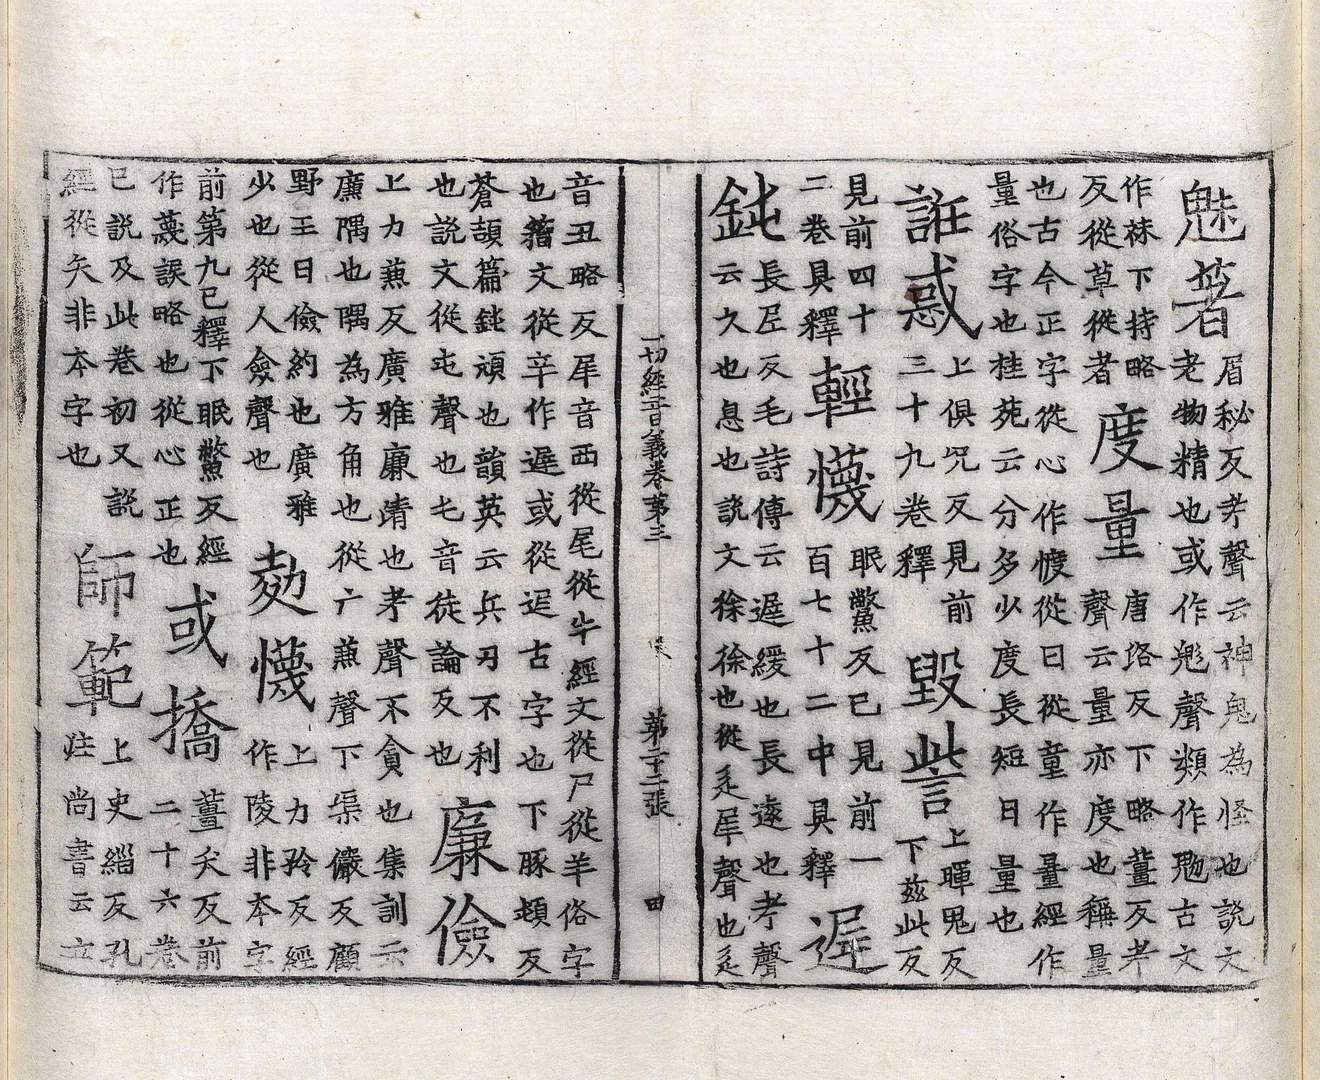 魅著
眉秘反考聲云神鬼為怪也說文
老物精也或作鬽聲類作䰡古文
作𥘯下持略
反從草從者
度量
唐路反下略薑反考
聲云量亦度也稱量
也古今正字從心作㦜從曰從童作量經作
量俗字也桂苑云分多少度長短曰量也
誑惑
上俱況反見前
三十九卷釋
毀訾
上暉鬼反
下茲此反
見前四十
二卷具釋
輕懱
眠鱉反已見前一
百七十二中具釋
遲
鈍
長𡰥反毛詩傳云遲緩也長遠也考聲
云久也息也說文徐徐也從辵犀聲也辵
一切經音義卷第三
第二十二張
田
音丑略反犀音西從尾從牛經文從尸從羊俗字
也籀文從辛作遲或從𡰥古字也下豚頓反
蒼頡篇鈍頑也韻英云兵刃不利
也說文從屯聲也屯音徒論反也
廉儉
上力蒹反廣雅廉清也考聲不貪也集訓云
廉隅也隅為方角也從广蒹聲下渠儼反顧
野王曰儉約也廣雅
少也從人僉聲也
㔣懱
上力矜反經
作陵非本字
前第九已釋下眠鱉反經
作蔑誤略也從心正也
或撟
薑夭反前
二十六卷
已說及此卷初又說
經從矢非本字也
師範
上史緇反孔
注尚書云立